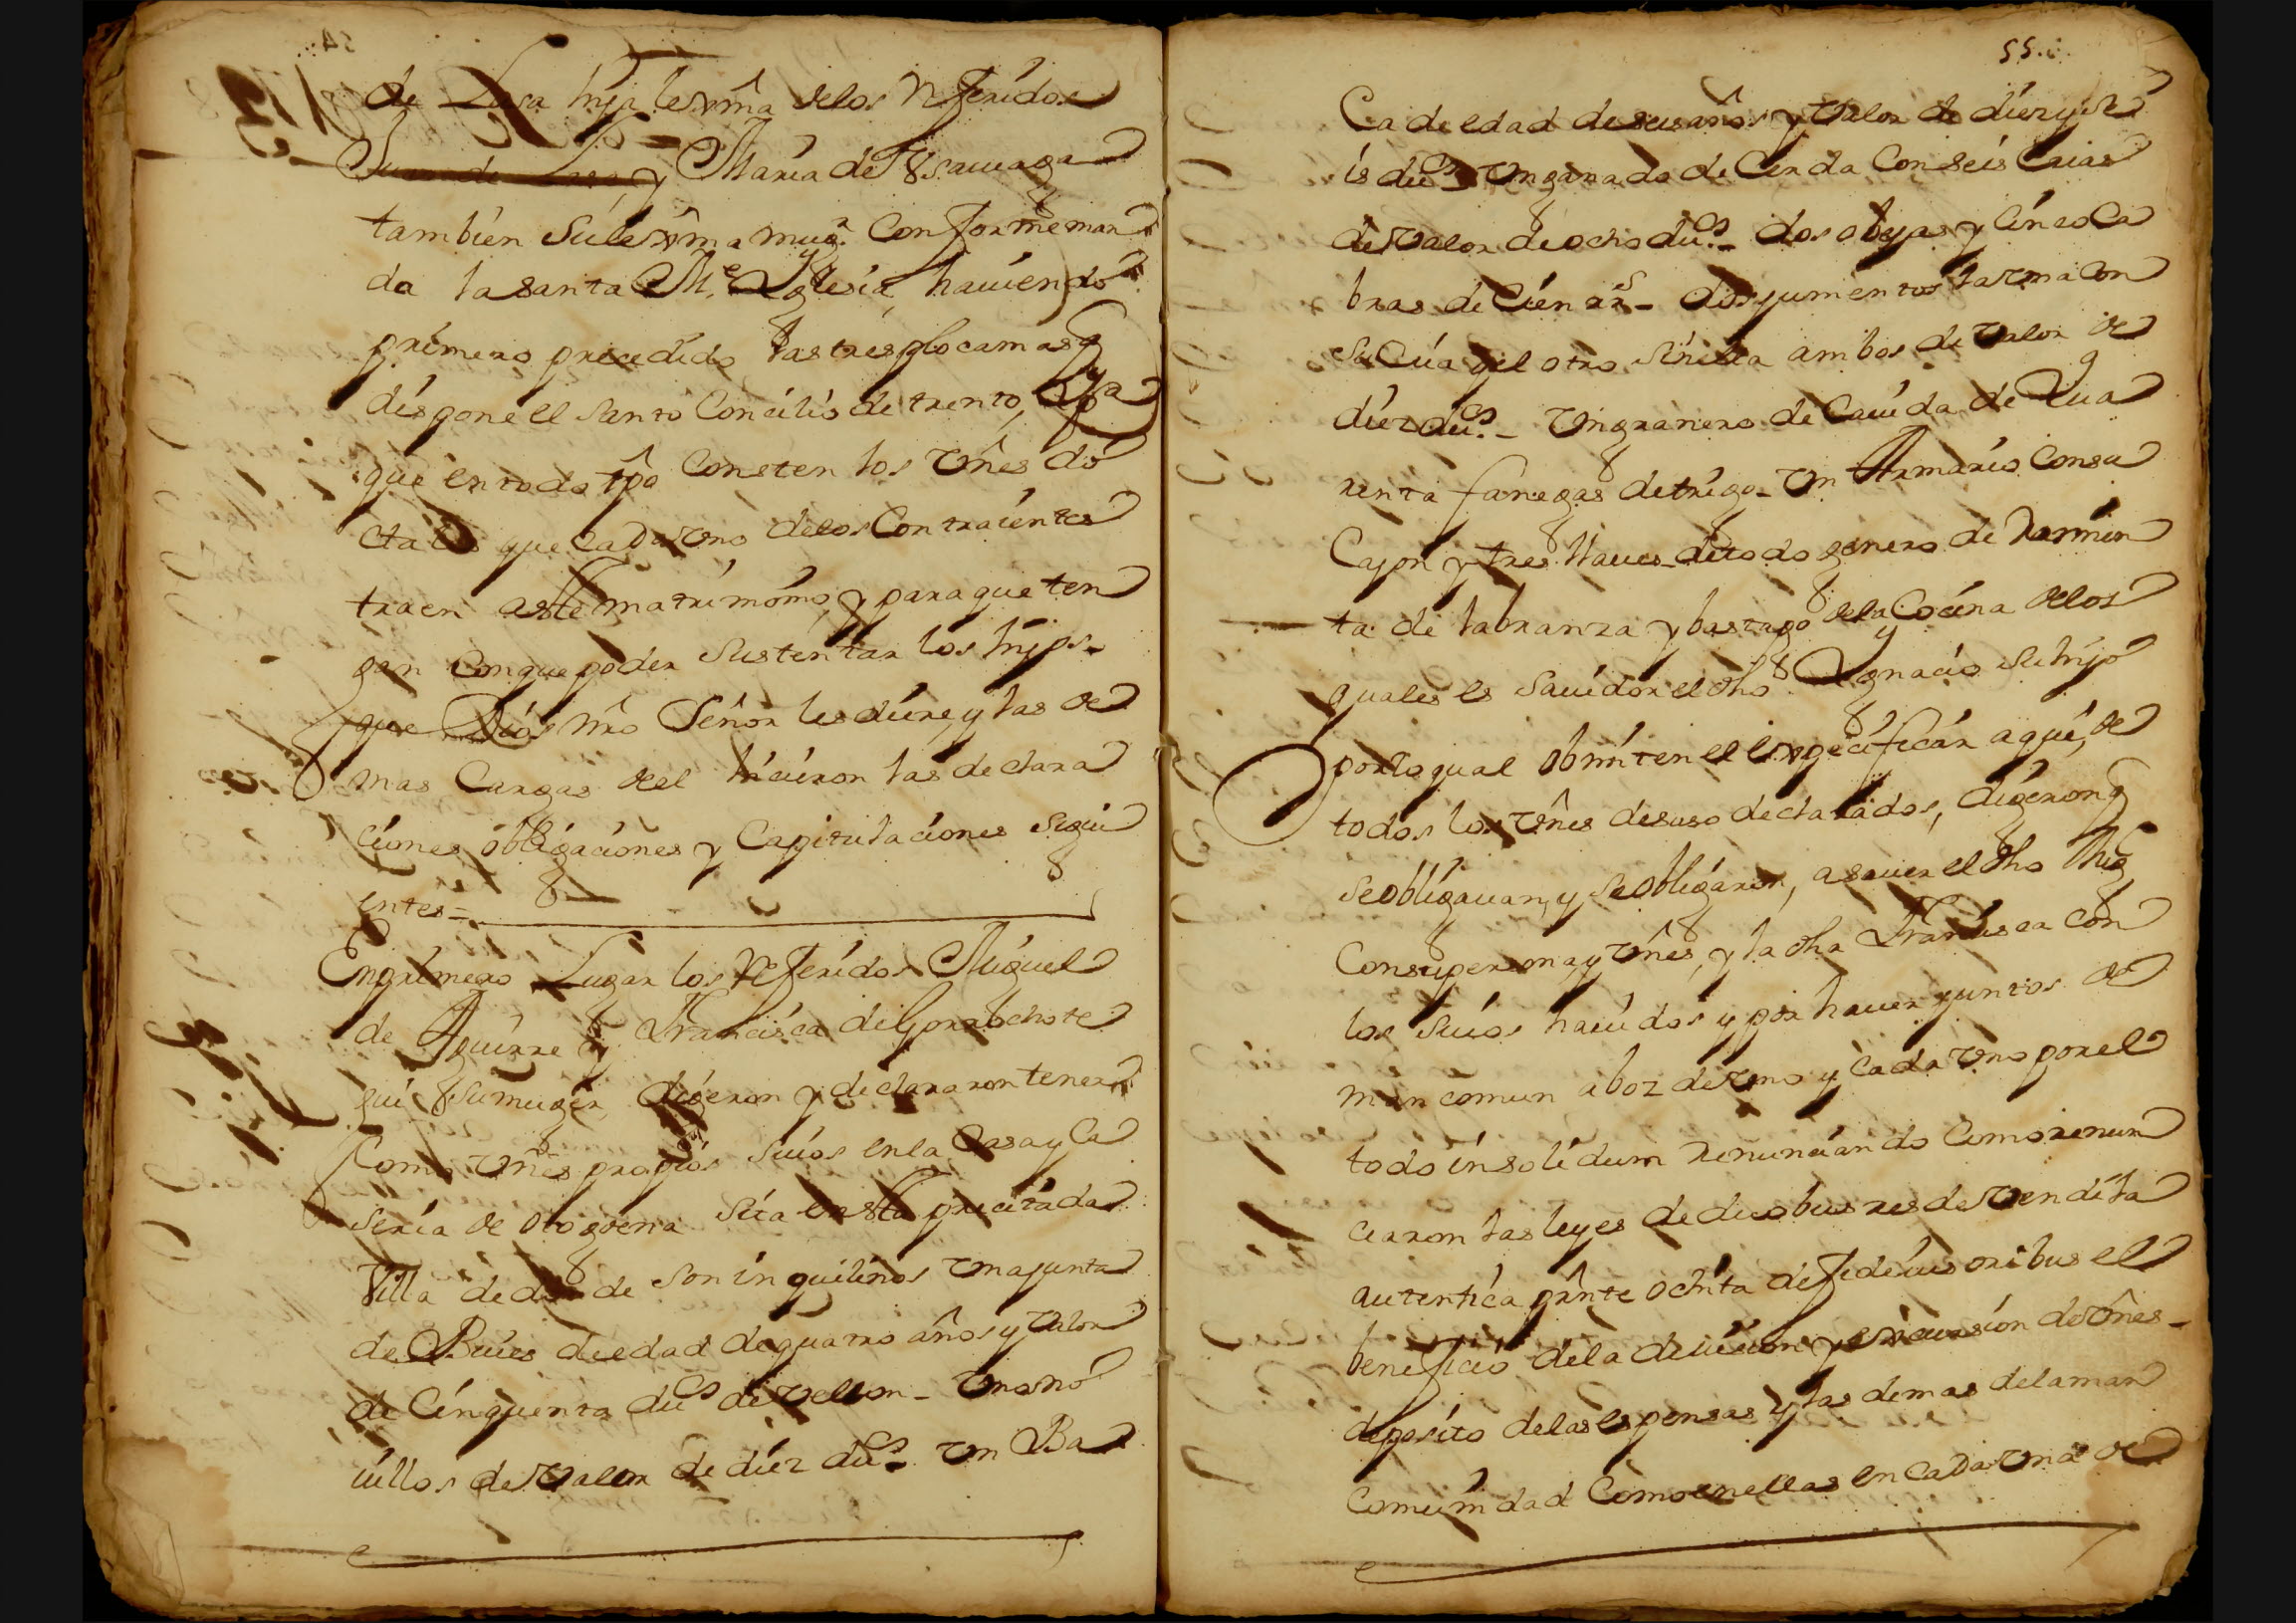 de Lasa hija lexma de los referidos
Juan de Lasa, y Maria de
tambien su lexma mugr. conforme man
da la santa Me. Yglesia, haviendo
primero precedido las tres plocamas q
dispone el santo Concilio de trento, Y pa
que en todo tpo consten los vnes do
tales que cada vno delos Contraientes
traen a este matrimonio, y para que ten
gan con que poder sustentar los hijos
que Dios nro Señor les diere, y las de
mas Cargas del hicieron las declara
ciones obligaciones y Capitulaciones sigui
entes=
En primero Lugar los referidos Miguel
de Aguirre y Francisca de Gorrochate
gui su muger, digeron y declararon tener
como vnes propios suios en la Casa y Ca
seria de sita en esta precitada
Villa de donde son inquilinos vna junta
de Bueies de edad de quatro años y valor
de Cinquenta dus de vellon - vnos no
uillos de valor de diez dus. - vn Ba
55.
Ca de edad de seis años y valor de diez y se
is dus - vn ganado de Cerda Con seis Crias
de valor de ocho dus. - dos obejas y Cinco Ca
bras de Cien rrs - dos jumentos la vna con
su Cria y el otro sin ella ambos de valor de
diez dus. - vn granero de Cauida de Qua
renta fanegas de trigo - vn Armario Con su
Cajon y tres llaues - de todo genero de Rarmien
ta de labranza y bastago de la Cocina de los
quales es sauidor el dho Ygnacio su hijo
por lo qual obmiten el expecificar aqui, de
todos los vnes desuso declarados, digeron q
se obligauan, y se obligaron, a sauer el dho Mig
Con su persona y vnes, y la dha Francisca con
los suios hauidos y por hauer juntos de
man comun a boz de vno y cada vno por el
todo insolidum renunciando como renun
ciaron las leyes de duobus res de vendita
autentica prnte ochita de fideiusoribus el
beneficio dela diuision y excursion de vnes -
deposito de las espensas y las demas dela man
comunidad Como en ellas en Cada vna de